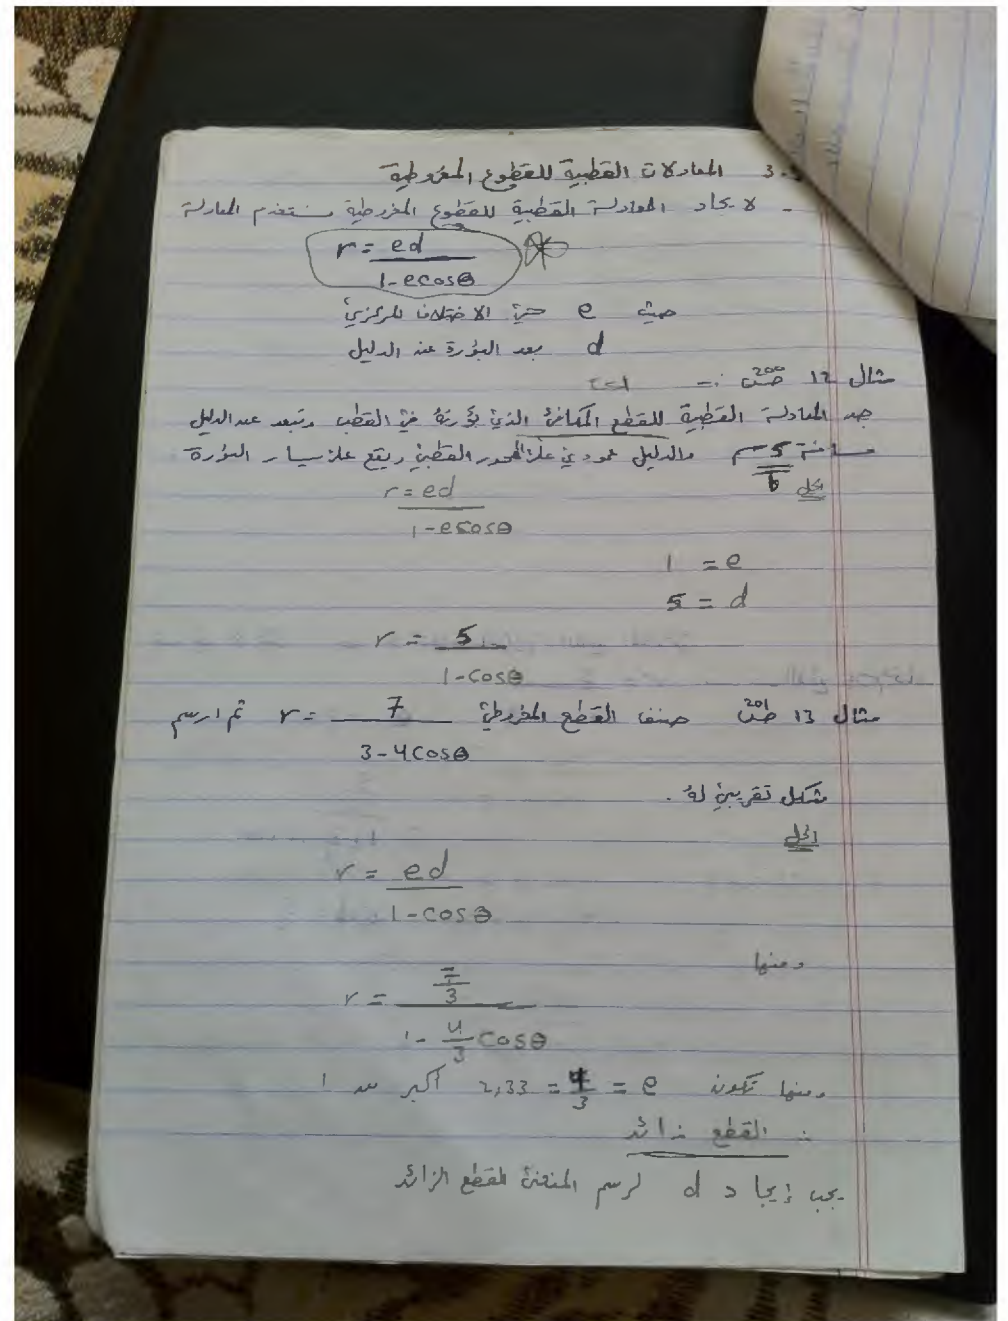 3.5 المعادلات القطبية للقطوع المخروطية
- لايجاد المعادلة القطبية للقطوع المخروطية نستخدم المعادلة
r = ed / 1-ecosθ
حيث e هي الاختلاف المركزي
d بعد البؤرة عن الدليل
مثال 12 ص200 :-
جد المعادلة القطبية للقطع المكافئ الذي بؤرته في القطب وتبعد عن الدليل
مسافة 5 سم والدليل عمودي على المحور القطبي ويقع على يسار البؤرة
الحل
r = ed / 1-ecosθ
1 = e
5 = d
r = 5 / 1-cosθ
مثال 13 ص201 صنف القطع المخروطي r = 7 / 3-4cosθ ثم ارسم
شكل تقريبي له .
الحل
r = ed / 1-cosθ
ومنها
r = 7/3 / 1- 4/3 cosθ
ومنها تكون e = 4/3 = 2,33 أكبر من 1
∴ القطع زائد
يجب إيجاد d لرسم المنحنى للقطع الزائد